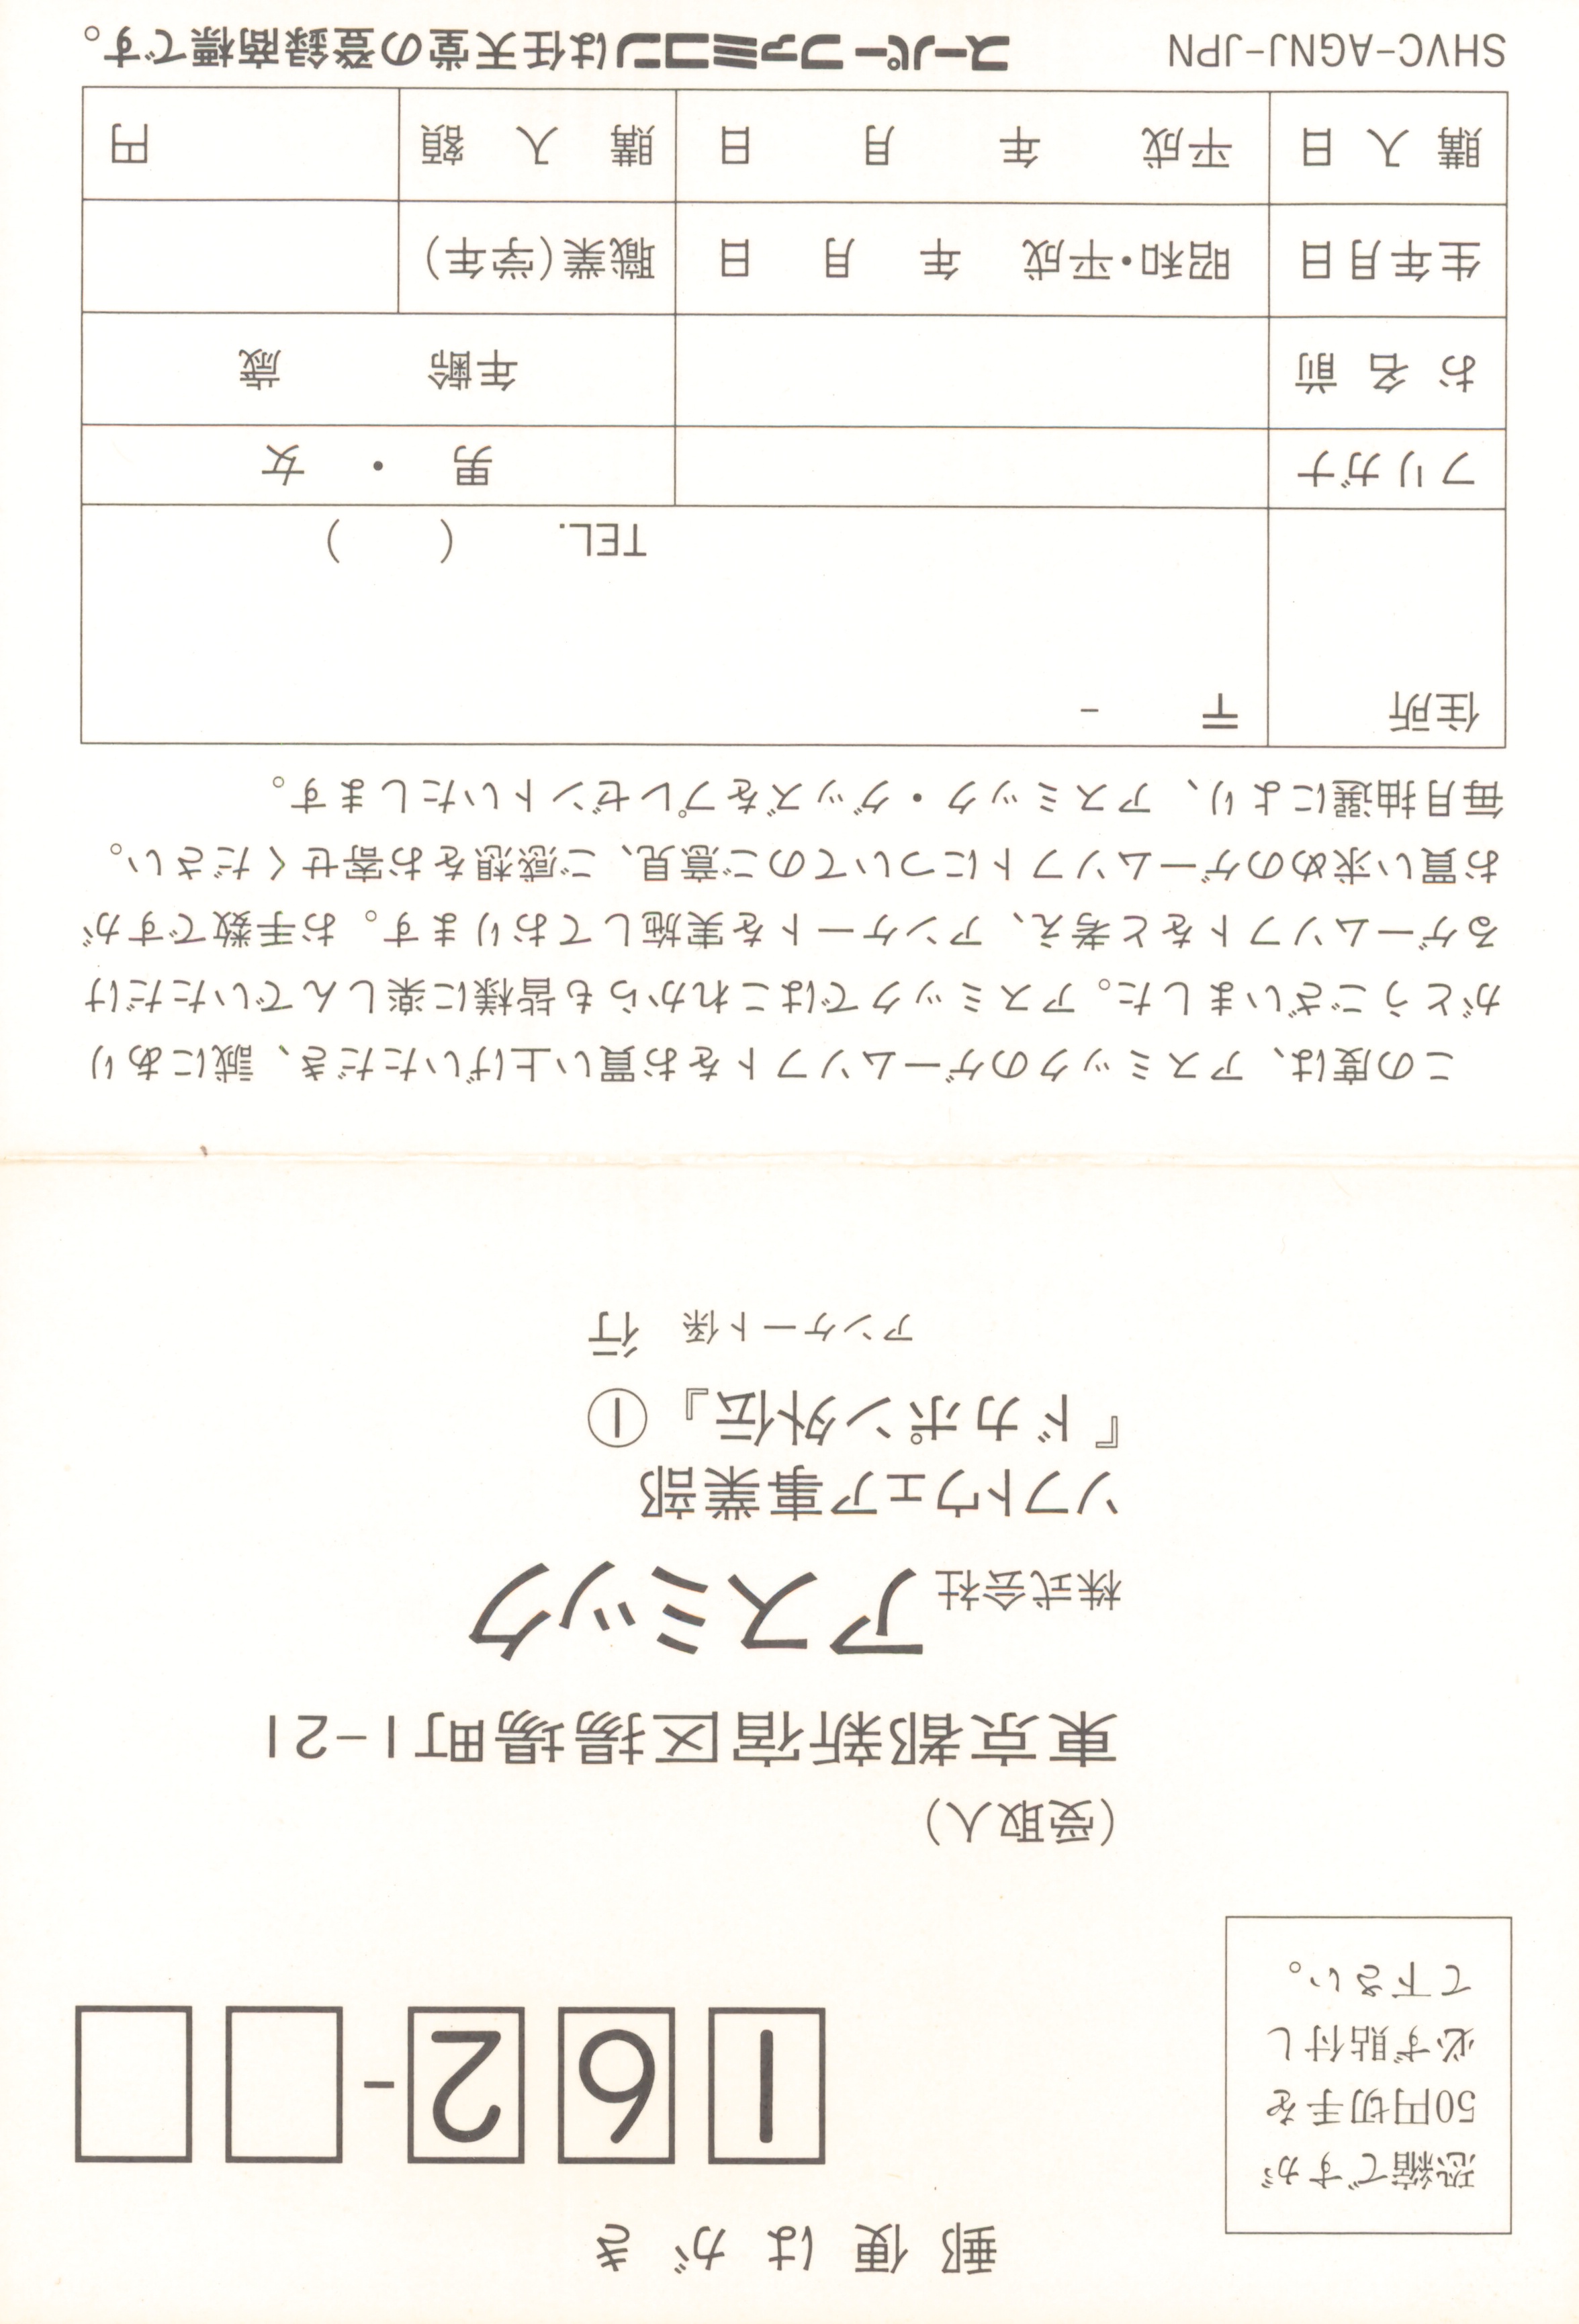 郵便はがき
恐縮ですが
50円切手を
必ず貼付し
て下さい。
162-
(受取人)
東京都新宿区揚場町1-21
株式会社アスミック
ソフトウェア事業部
『ドカポン外伝』①
アンケート係 行
この度は、アスミックのゲームソフトをお買い上げいただき、誠にあり
がとうございました。アスミックではこれからも皆様に楽しんでいただけ
るゲームソフトをと考え、アンケートを実施しております。お手数ですが
お買い求めのゲームソフトについてのご意見、ご感想をお寄せください。
毎月抽選により、アスミック・グッズをプレゼントいたします。
住所 〒 -
TEL. ( )
フリガナ 男・女
お名前 年齢 歳
生年月日 昭和・平成 年 月 日 職業(学年)
購入日 平成 年 月 日 購入額 円
SHVC-AGNJ-JPN スーパーファミコンは任天堂の登録商標です。